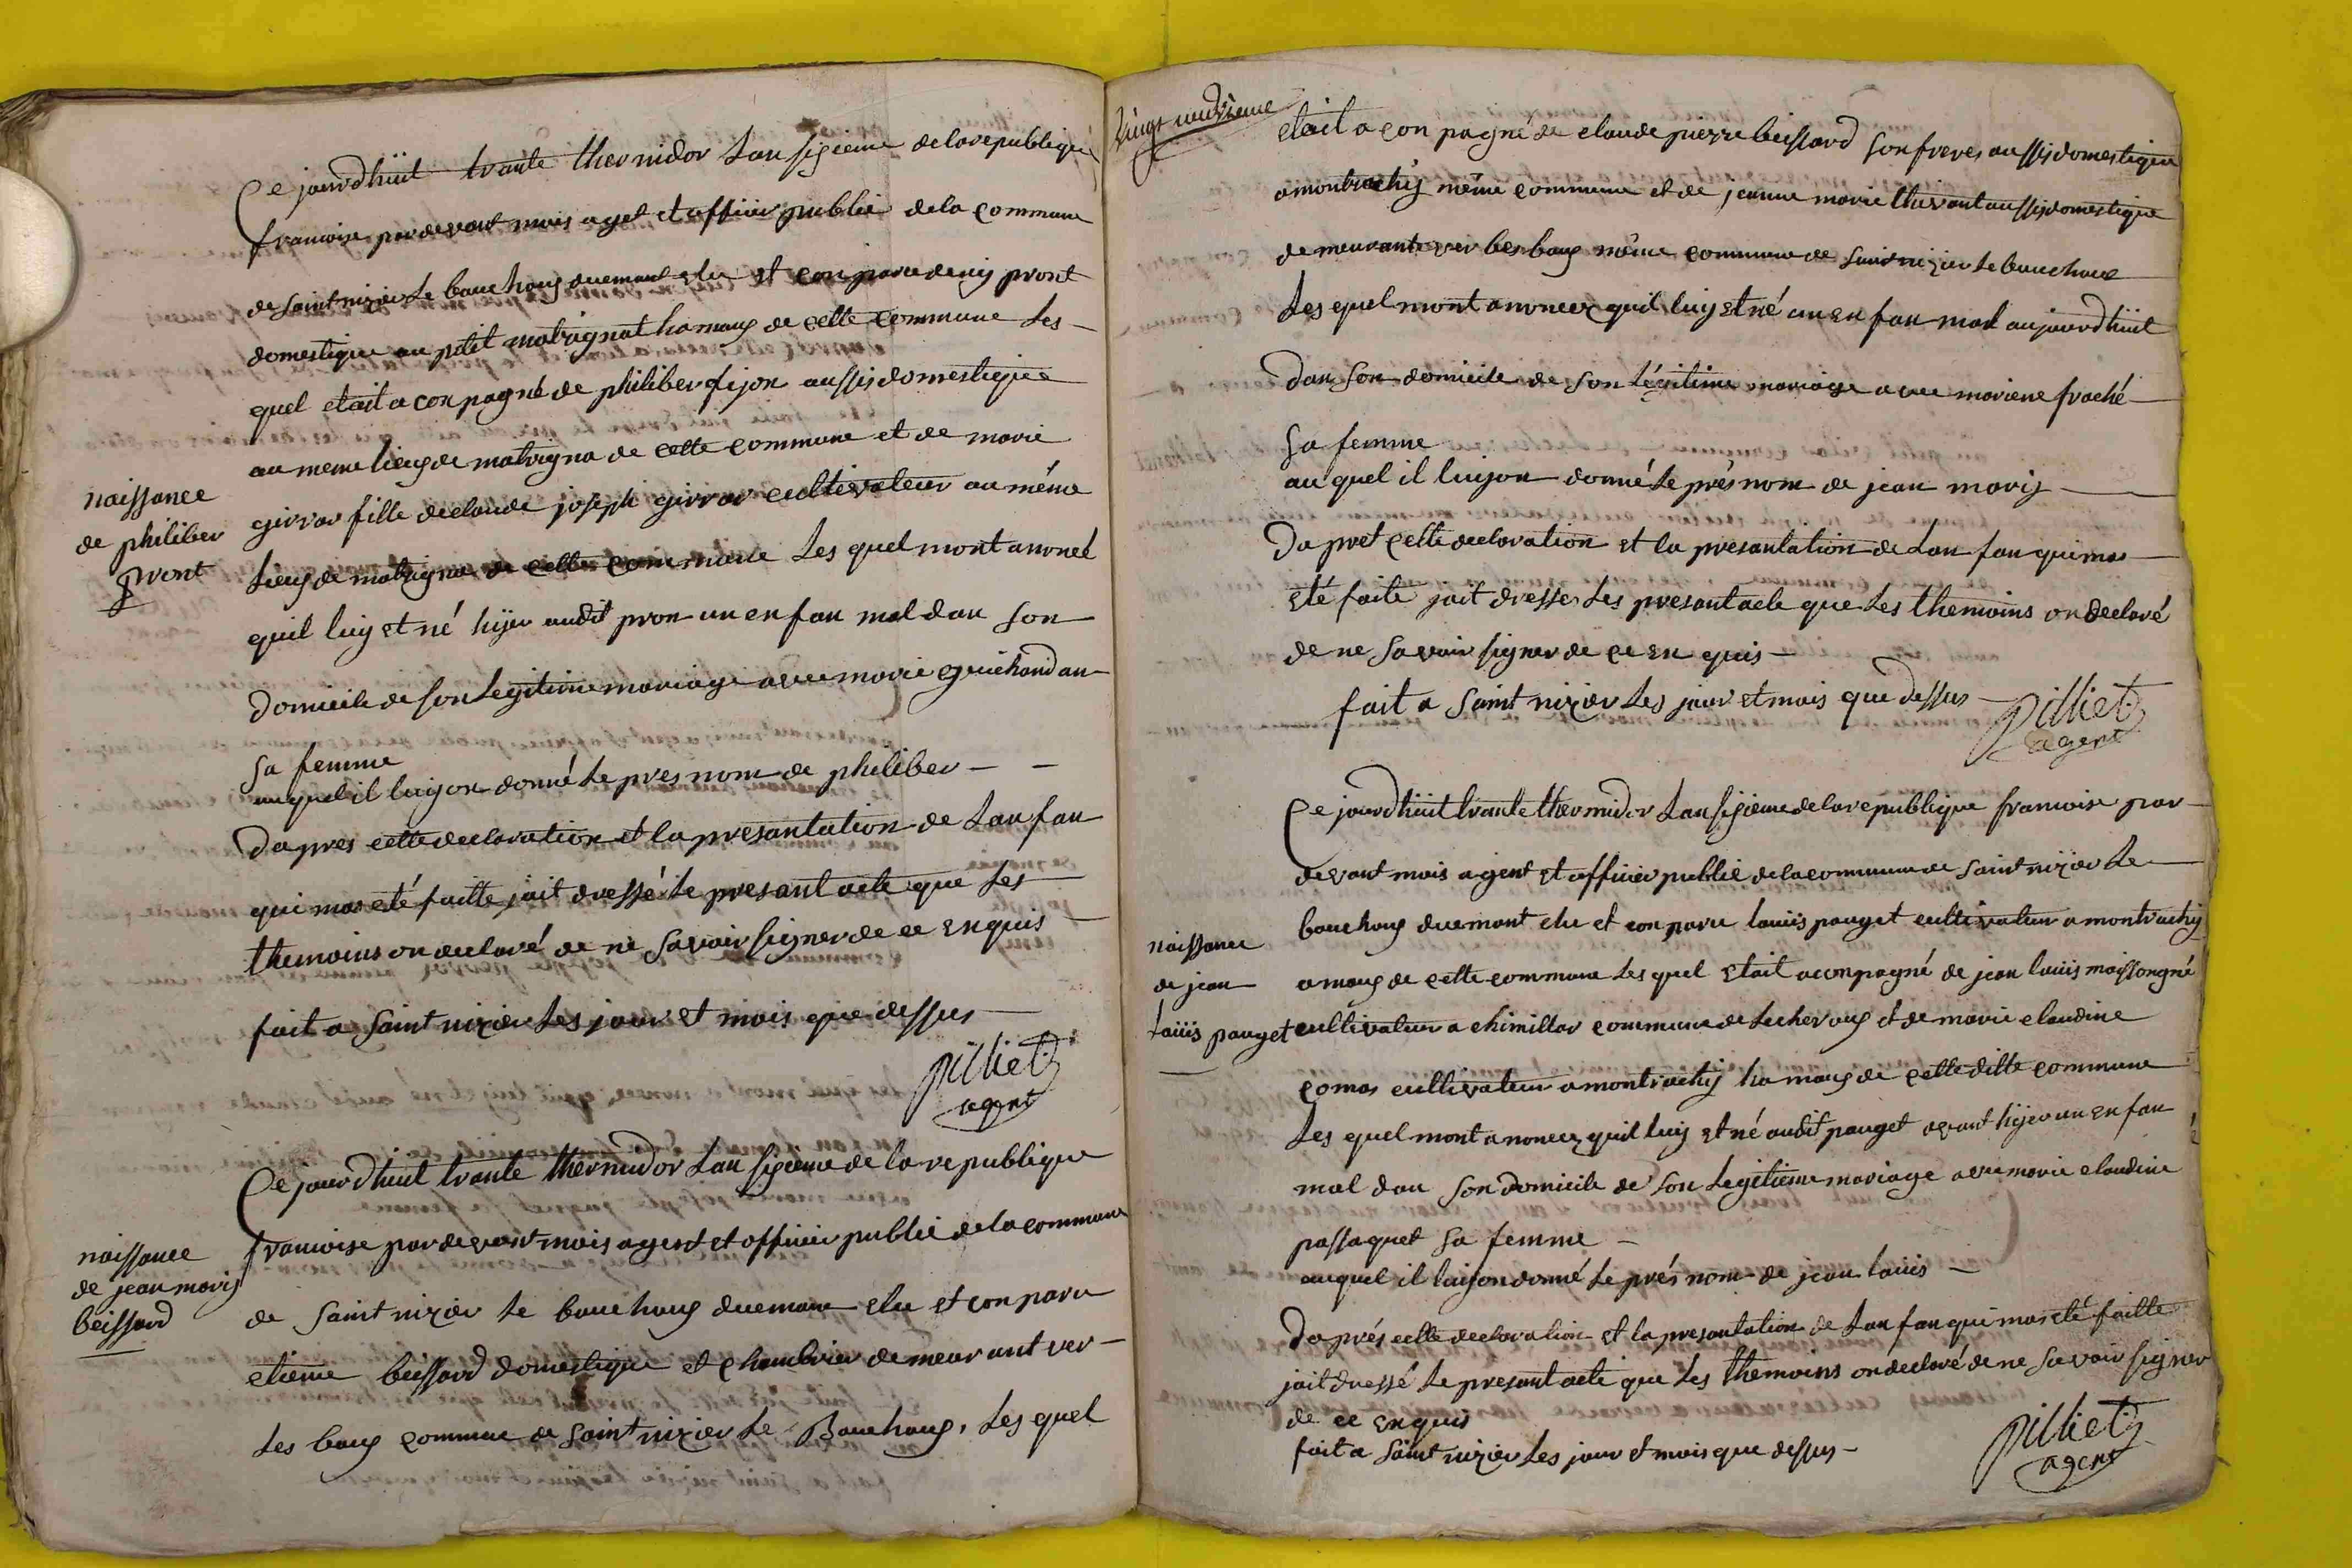 Ce jourdhüit trante thermidor Lan sigieme de la republique
francoise par devant mois aget et officier public de la commune
de saint nizier Le bouchoug duemant elu et conparu denis pront
domestique au ptit matrignat hamaug de cette commune Les
quel etait aconpagné de philiber fijon aussis domestique
au meme lieug de matrigna de cette commune et de marie
girrar fille de claude joseph girrar cultivateur au même
Lieug de matrigna de cette commune Les quel mont anoncé
quil luy et né hijer audit pron un enfan mal dan son
domicile de son Legitime mariage avec marie guichard an
sa femme
auquel il luyon donné Le pres nom de philiber
Dapres cette declaration et la presantation de Lanfan
qui mas eté faitte jait dressé Le presant acte que Les
themoins on declaré de ne savoir signer de ce enquis
fait a Saint nizier Les jour et mois que dessus
pilliet
agent
naissance
de philiber
pront
Ce jourdhuit trante thermidor Lan sigieme de la republique
francoise par devant mois agent et officier public de la commune
de Saint nizier Le bouchoug duemant elu et conparu
etieme beissard domestique et chambrier demeurant ver
Les boug commune de Saint nizier Le Bouchoug, Les quel
naissance
de jean maris
beissard
vingt neuvieme
etait aconpagné de claude pierre beissard son freres aussis domestique
a montrachy même commune et de jeanne marie thevant aussis domestique
demeurant ver les boug même commune de saint nizier le bouchoug
Les quel mont anoncez quil luy et né un enfan mal aujourdhüit
dan son domicile de son Légitime mariage avec mariene fraché
Sa femme
auquel il luyon donné Le prés nom de jean maris
Dapret cette declaration et la presantation de Lanfan qui mas
eté faite jait dresser Les presant acte que Les themoins on declaré
de ne Savoir signer de ce enquis
fait a Saint nizier Les jour et mois que dessus
pilliet
agent
Ce jourdhüit trante thermidor Lan sigieme de la republique francoise par
devant mois agent et officier public de la commune de saint nizier Le
bouchoug duemant elu et conparu louis pauget cultivateur a montrachy
amaug de cette commune Les quel etait aconpagné de jean louis maissongné
cultivateur a chimillar commune de Lecheroug et de marie claudine
comas cultivateur a montrachy hamaug de cette ditte commune
Les quel mont anoncez quil luy et né audit pauget avant hijer un enfan
mal dan son domicile de son Legitieme mariage avec marie claudine
passaquet Sa femme
auquel il luyon donné Le prés nom de jean louis
Daprés cette declaration et la presantation de Lanfan qui mas eté faitte
jait dressé Le presant acte que Les themoins on declaré de ne Savoir signer
de ce enquis
fait a Saint nizier Les jour et mois que dessus
pilliet
agent
naissance
de jean
louis pauget